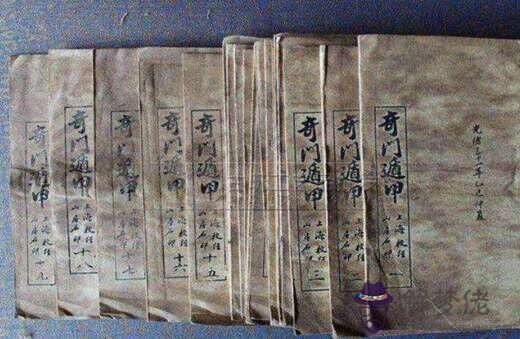 光緒三十一年乙巳仲夏
奇門遁甲
上海校經
山房石印
一
奇門遁甲
上海校經
山房石印
二
奇門遁甲
上海校經
山房石印
三
奇門遁甲
上海校經
山房石印
十五
奇門遁甲
上海校經
山房石印
十六
奇門遁甲
上海校經
山房石印
十七
奇門遁甲
上海校經
山房石印
十八
奇門遁甲
上海校經
山房石印
九
夢佬